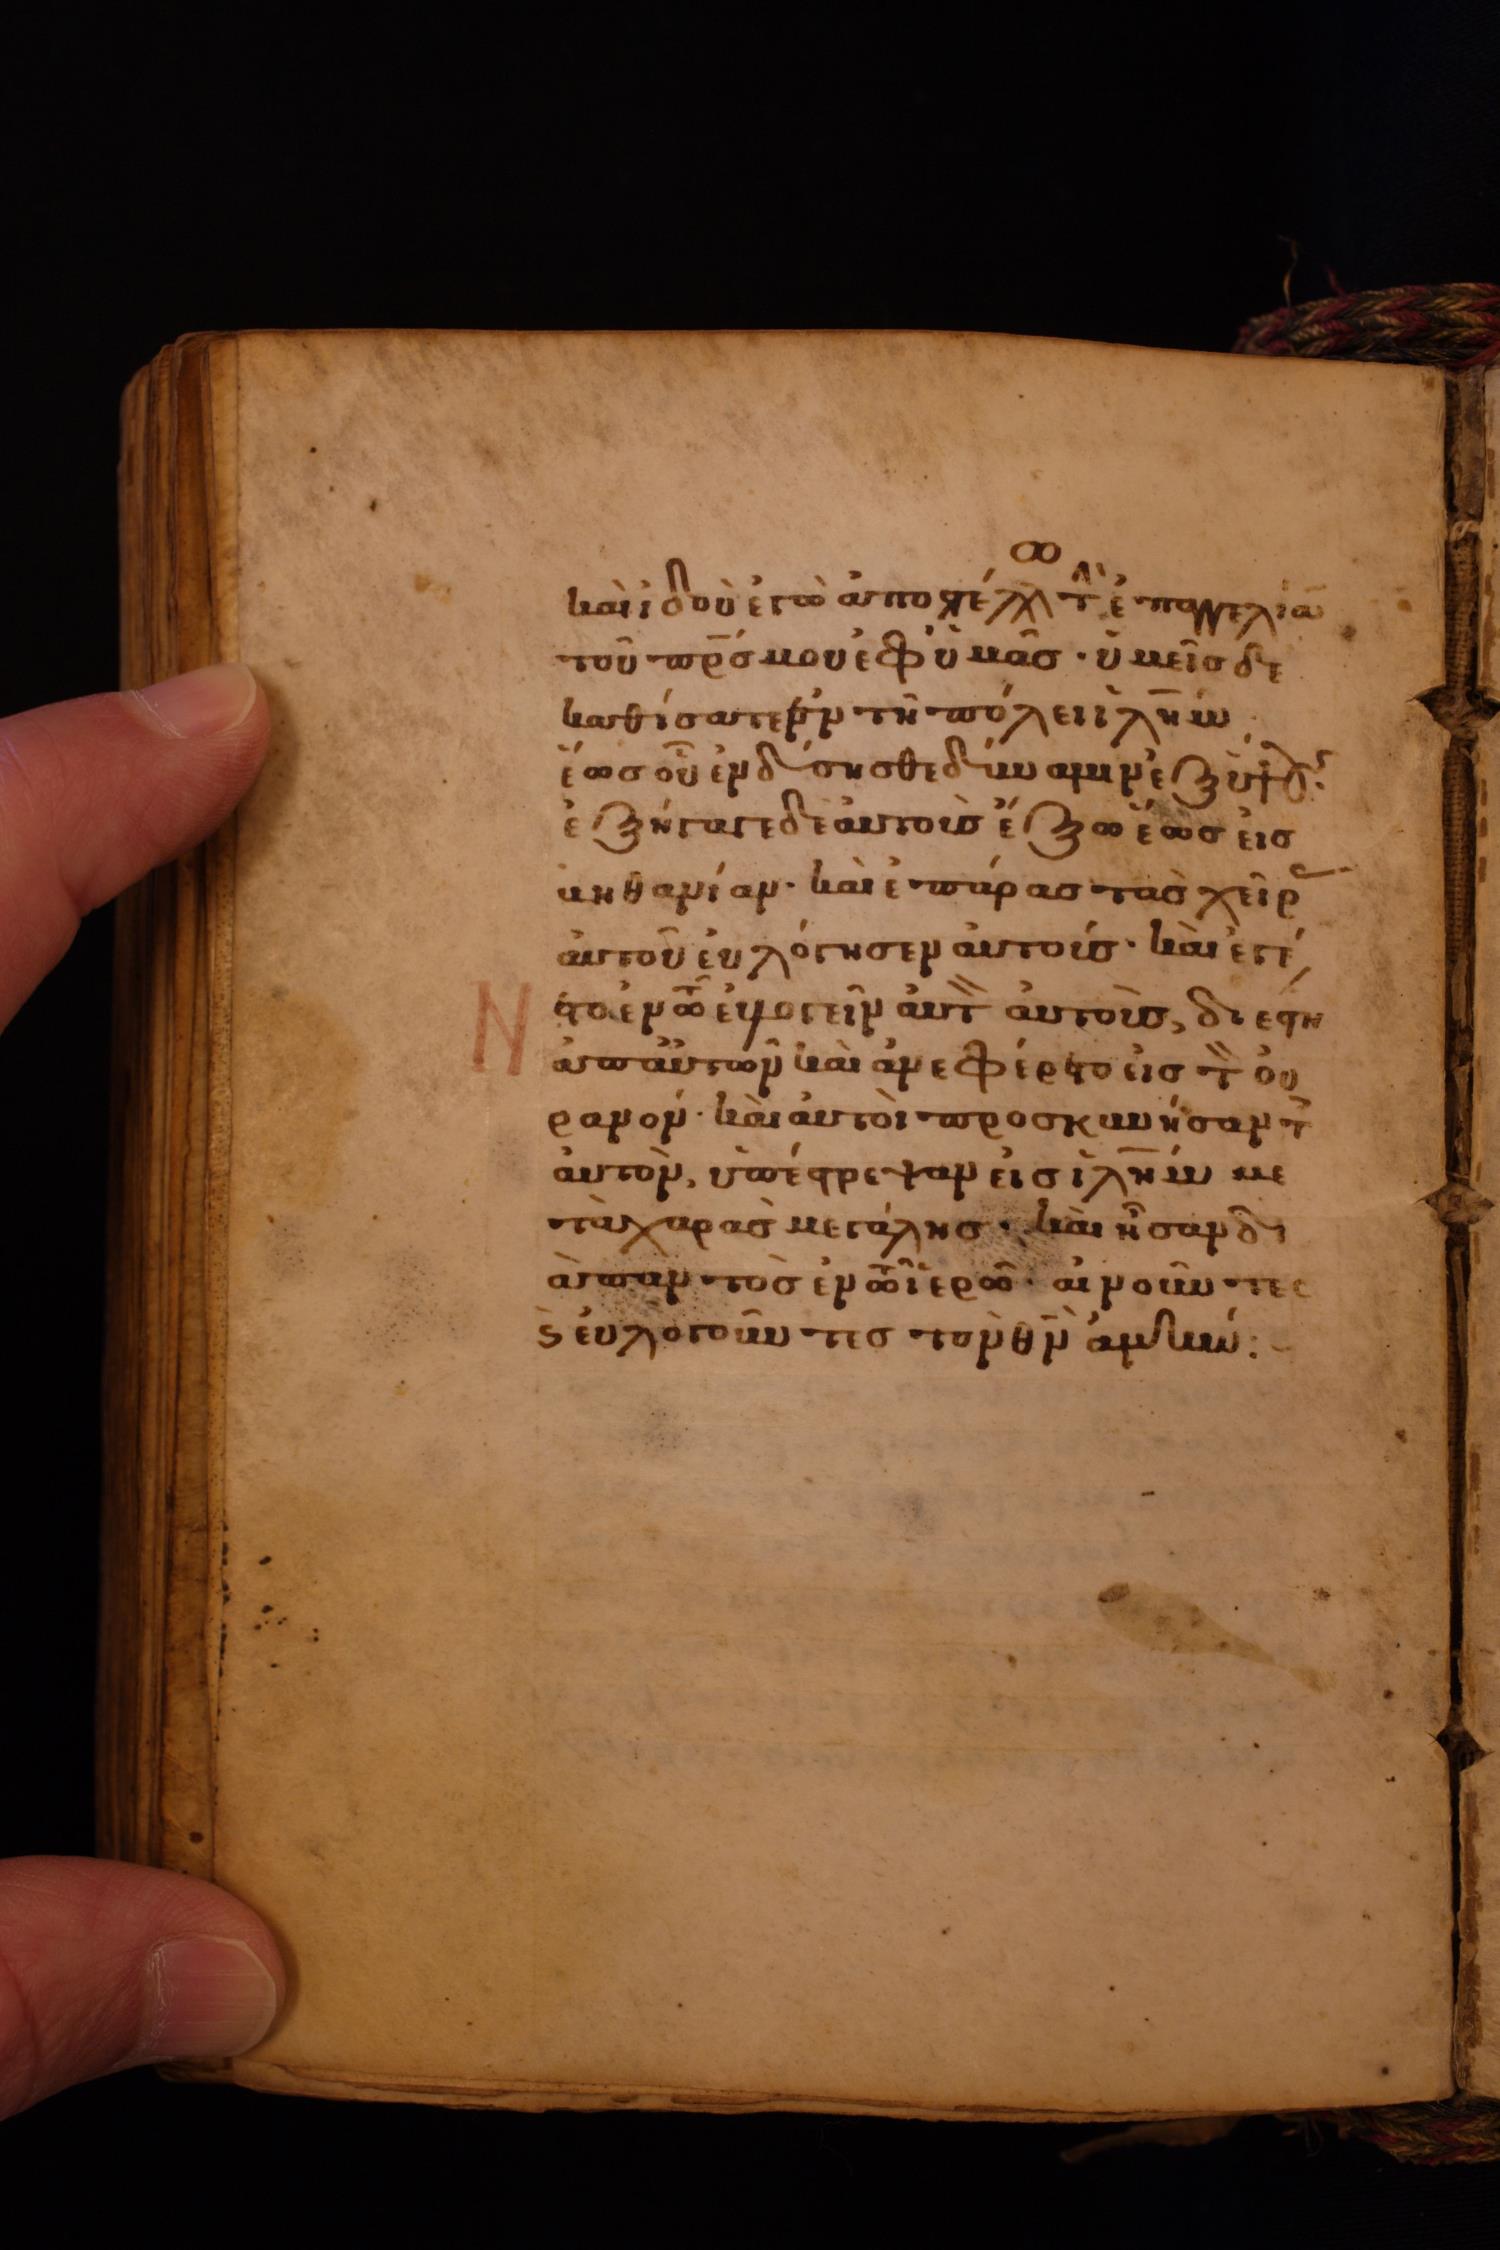 καὶ ἰδοὺ ἐγὼ ἀποστέλλω τὴν ἐπαγγελίαν
τοῦ πρσ μου ἐφ ὑμᾶσ · ὑμεῖσ δε
καθίσατε ἐν τῆ πόλει ἰλημ
ἕωσ οὗ ἐνδύσησθε δύναμιν ἐξ ὕψους
ἐξήγαγε δὲ ἀυτοὺσ ἔξω ἕωσ εισ
βηθανίαν · καὶ ἐπάρασ τασ χεῖρας
ἀυτοῦ ἐυλόγησεν ἀυτούσ · καὶ ἐγέ
νετο ἐν τῶ ἐυλογεῖν ἀυτὸν ἀυτοὺσ, διέστη
ἀπ ἀυτῶν καὶ ἀνεφέρετο εισ τὸν ου
ρανόν · καὶ ἀυτοὶ προσκυνήσαντες
ἀυτὸν, ὑπέστρεψαν εισ ἰλημ με
τὰ χαρᾶσ μεγάλησ · καὶ ἦσαν δι
ὰ παντὸσ ἐν τῶ ἱερῶ · αἰνοῦντες
ϗ ἐυλογοῦντεσ τὸν θν ἀμήν :